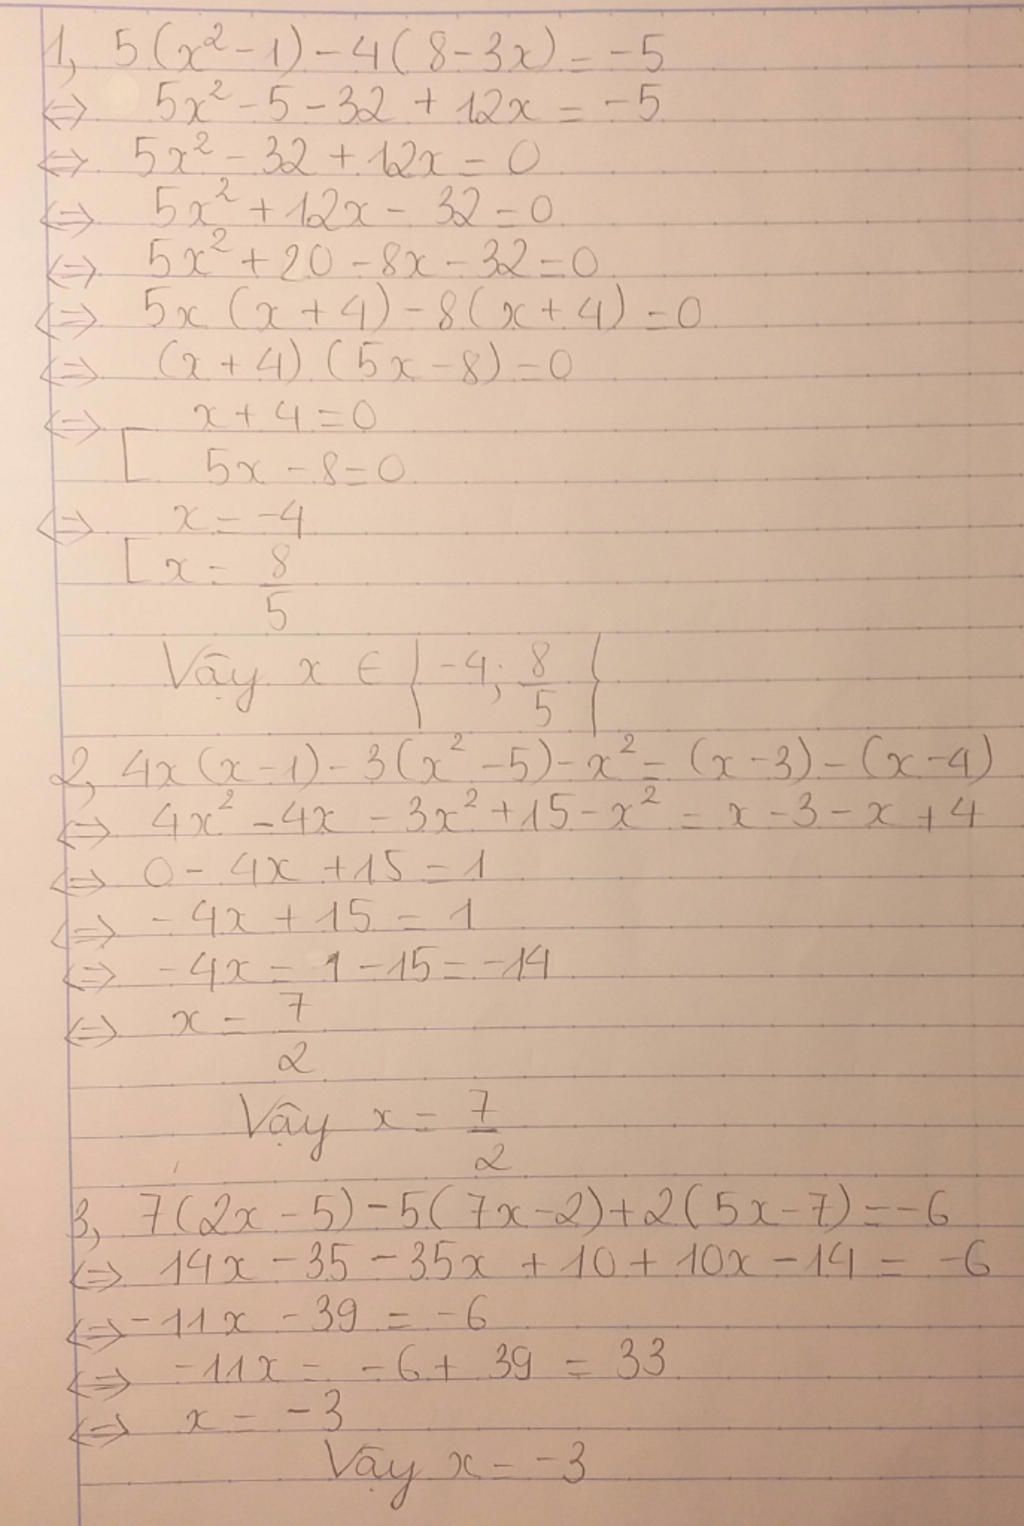 1, 5(x² - 1) - 4(8 - 3x) = -5
⇔ 5x² - 5 - 32 + 12x = -5
⇔ 5x² - 32 + 12x = 0
⇔ 5x² + 12x - 32 = 0
⇔ 5x² + 20 - 8x - 32 = 0
⇔ 5x (x + 4) - 8(x + 4) = 0
⇔ (x + 4) (5x - 8) = 0
⇔ [ x + 4 = 0
5x - 8 = 0
⇔ [ x = -4
x = 8/5
Vậy x ∈ {-4; 8/5}
2, 4x(x - 1) - 3(x² - 5) - x² = (x - 3) - (x - 4)
⇔ 4x² - 4x - 3x² + 15 - x² = x - 3 - x + 4
⇔ 0 - 4x + 15 = 1
⇔ -4x + 15 = 1
⇔ -4x = 1 - 15 = -14
⇔ x = 7/2
Vậy x = 7/2
3, 7(2x - 5) - 5(7x - 2) + 2(5x - 7) = -6
⇔ 14x - 35 - 35x + 10 + 10x - 14 = -6
⇔ -11x - 39 = -6
⇔ -11x = -6 + 39 = 33
⇔ x = -3
Vậy x = -3